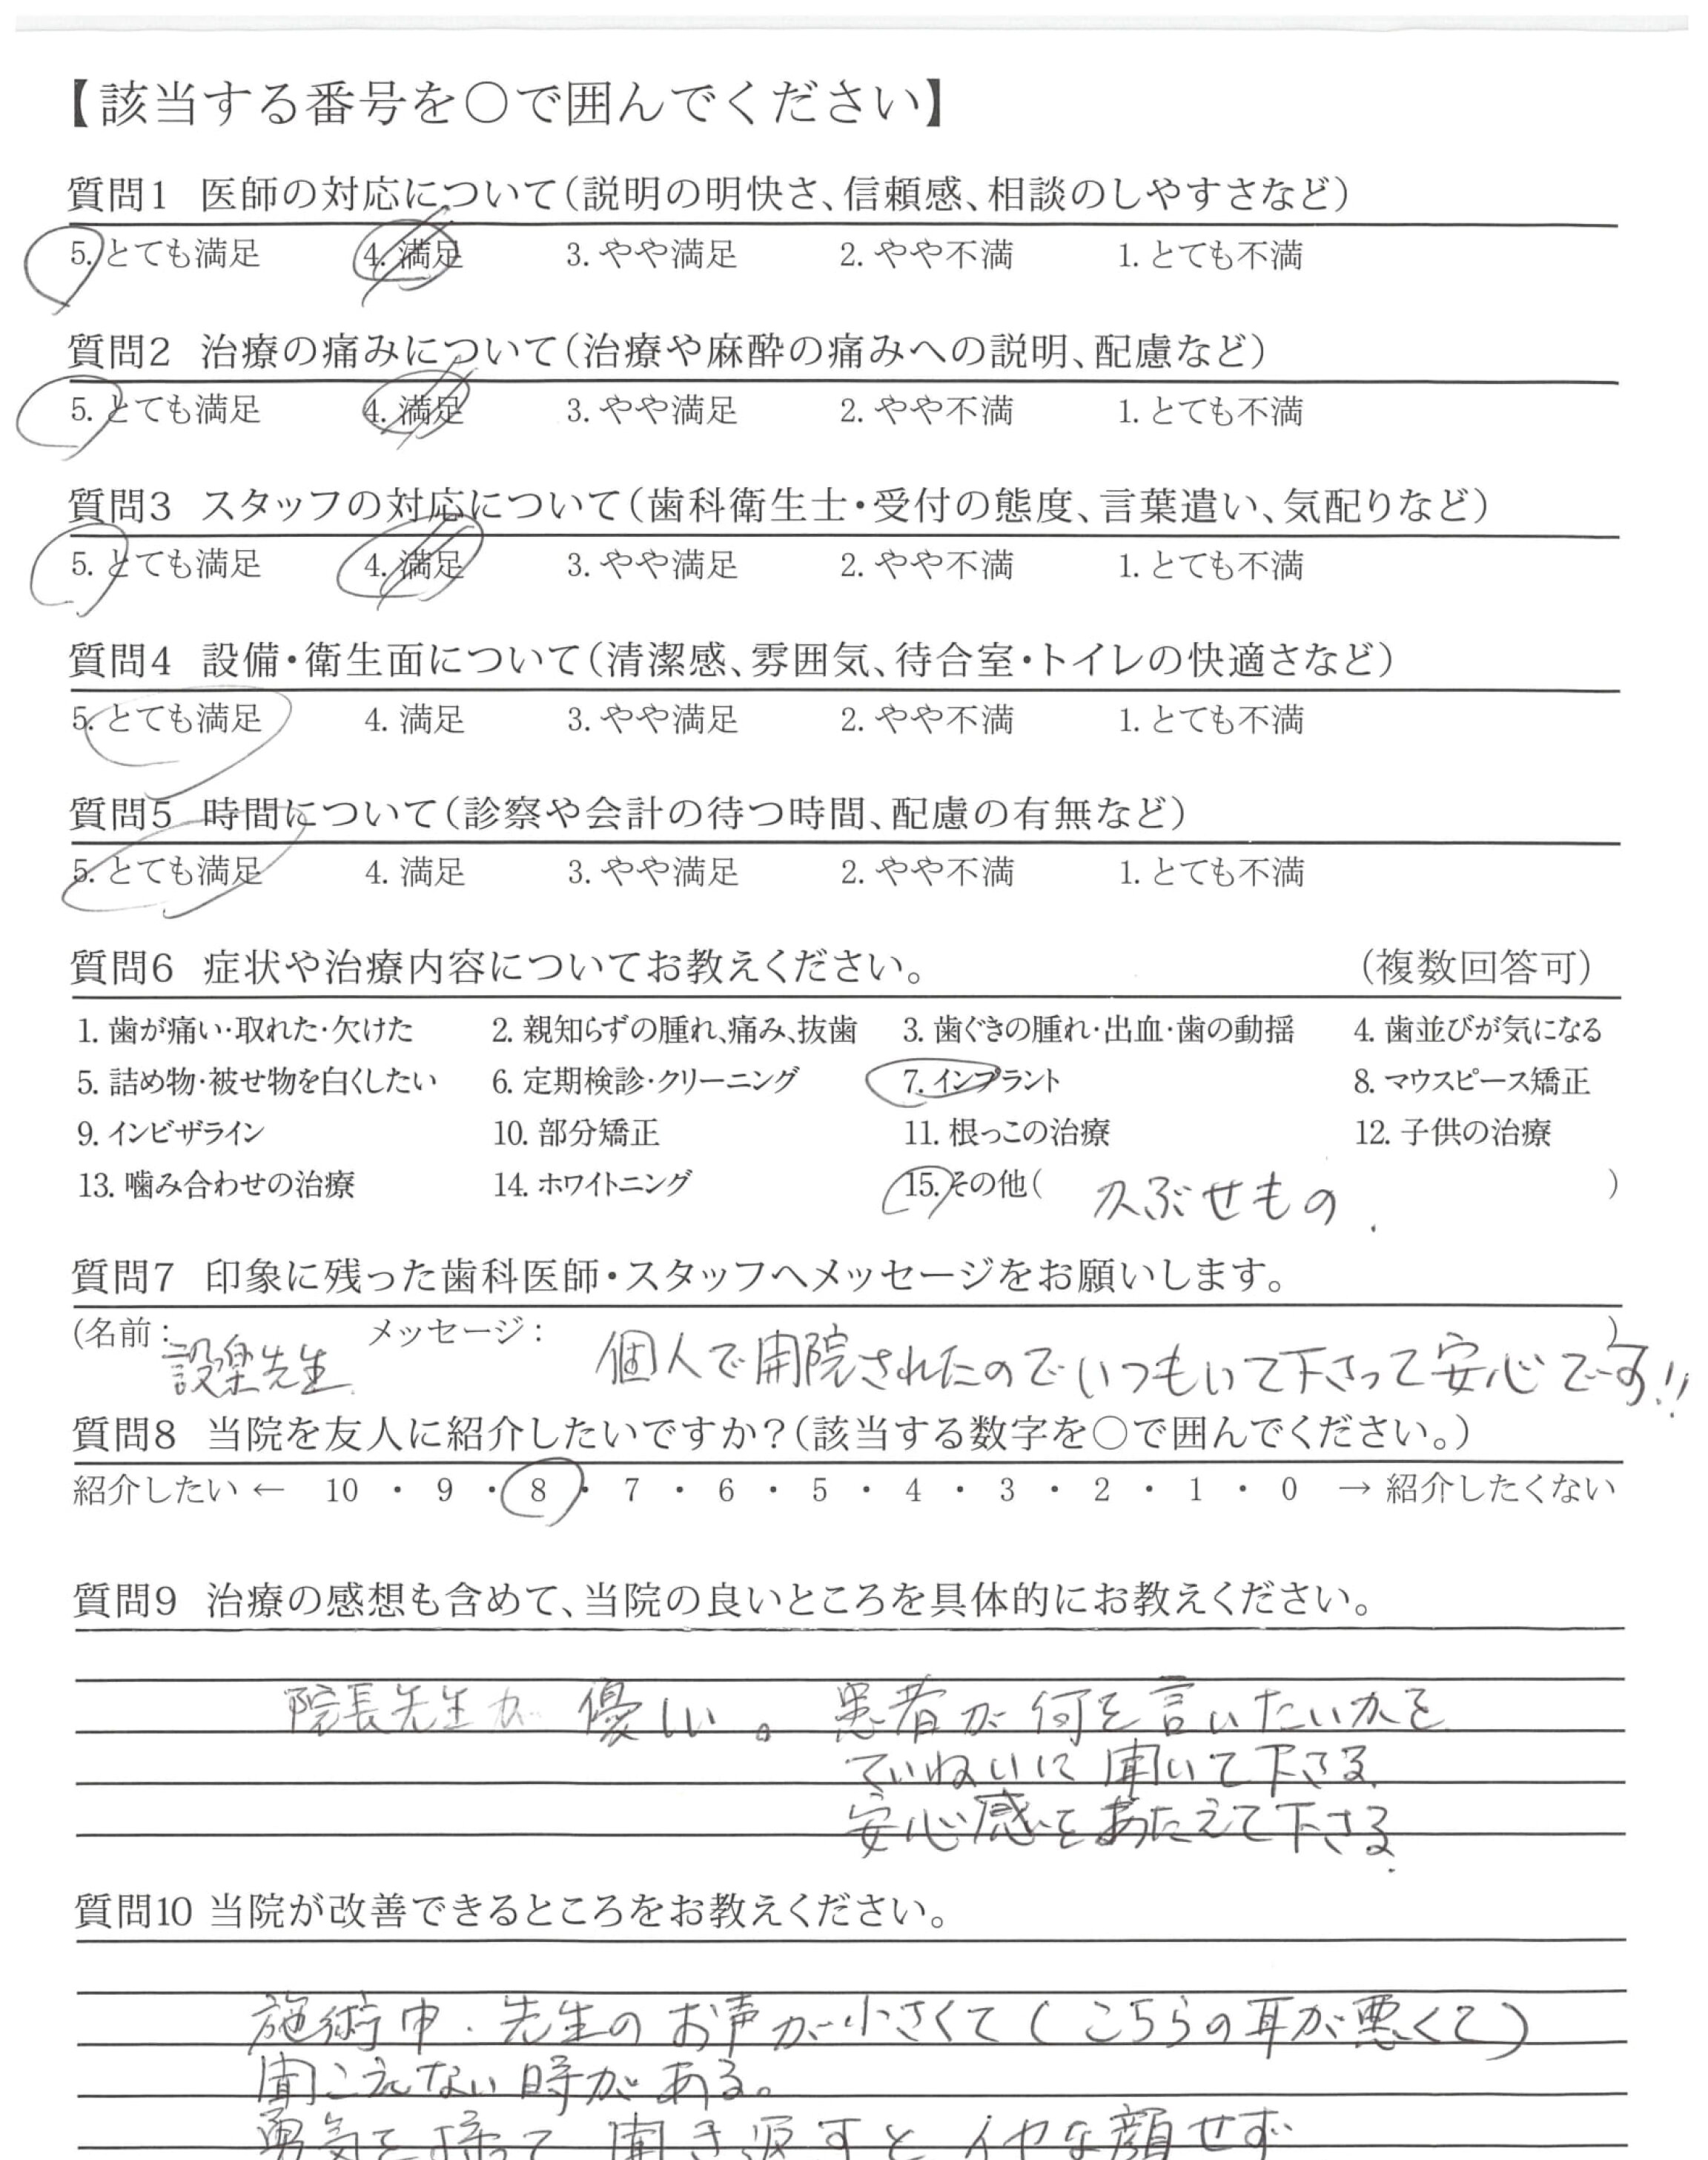 【該当する番号を○で囲んでください】
質問1 医師の対応について(説明の明快さ、信頼感、相談のしやすさなど)
5. とても満足 4. 満足 3. やや満足 2. やや不満 1. とても不満
質問2 治療の痛みについて(治療や麻酔の痛みへの説明、配慮など)
5. とても満足 4. 満足 3. やや満足 2. やや不満 1. とても不満
質問3 スタッフの対応について(歯科衛生士・受付の態度、言葉遣い、気配りなど)
5. とても満足 4. 満足 3. やや満足 2. やや不満 1. とても不満
質問4 設備・衛生面について(清潔感、雰囲気、待合室・トイレの快適さなど)
5. とても満足 4. 満足 3. やや満足 2. やや不満 1. とても不満
質問5 時間について(診察や会計の待つ時間、配慮の有無など)
5. とても満足 4. 満足 3. やや満足 2. やや不満 1. とても不満
質問6 症状や治療内容についてお教えください。 (複数回答可)
1. 歯が痛い・取れた・欠けた 2. 親知らずの腫れ、痛み、抜歯 3. 歯ぐきの腫れ・出血・歯の動揺 4. 歯並びが気になる
5. 詰め物・被せ物を白くしたい 6. 定期検診・クリーニング 7. インプラント 8. マウスピース矯正
9. インビザライン 10. 部分矯正 11. 根っこの治療 12. 子供の治療
13. 噛み合わせの治療 14. ホワイトニング 15. その他( かぶせもの. )
質問7 印象に残った歯科医師・スタッフへメッセージをお願いします。
(名前: 設楽先生. メッセージ: 個人で開院されたのでいつもいて下さって安心です!! )
質問8 当院を友人に紹介したいですか?(該当する数字を○で囲んでください。)
紹介したい ← 10 ・ 9 ・ 8 ・ 7 ・ 6 ・ 5 ・ 4 ・ 3 ・ 2 ・ 1 ・ 0 → 紹介したくない
質問9 治療の感想も含めて、当院の良いところを具体的にお教えください。
院長先生が 優しい。 患者が何を言いたいかを
ていねいに聞いて下さる.
安心感をあたえて下さる.
質問10 当院が改善できるところをお教えください。
施術中. 先生のお声が小さくて(こちらの耳が悪くて)
聞こえない時がある。
勇気を持って 聞き返すと イヤな顔せず